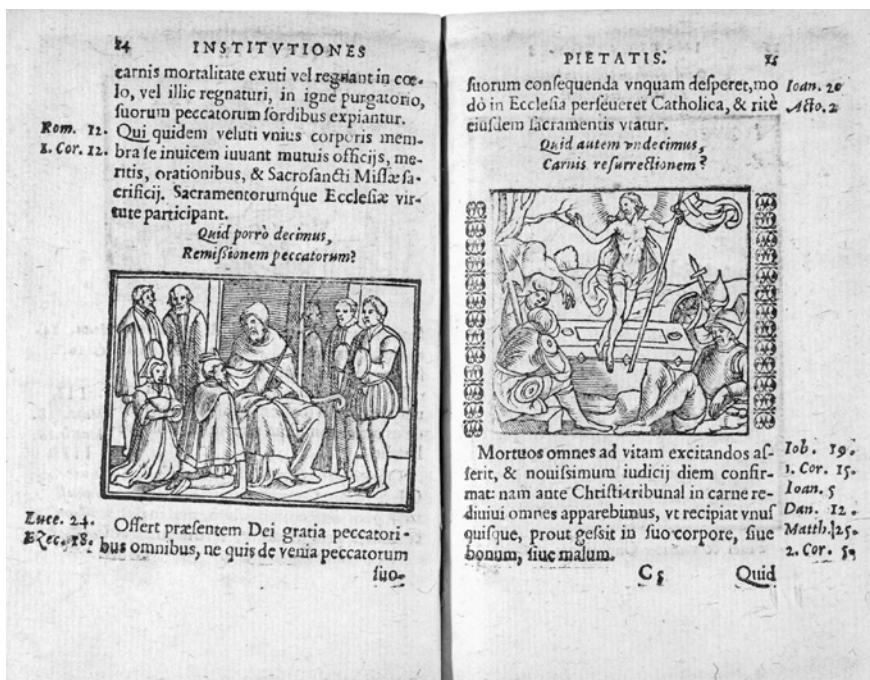 24 INSTITVTIONES
carnis mortalitate exuti vel regnant in cœ-
lo, vel illic regnaturi, in igne purgatorio,
suorum peccatorum sordibus expiantur.
Rom. 12. Qui quidem veluti vnius corporis mem-
1. Cor. 12. bra se inuicem iuuant mutuis officijs, me-
ritis, orationibus, & Sacrosancti Missæ sa-
crificij. Sacramentorumque Ecclesiæ vir-
tute participant.
Quid porrò decimus,
Remissionem peccatorum?
Luce. 24. Offert præsentem Dei gratia peccatori-
Ezec. 18. bus omnibus, ne quis de venia peccatorum
suo-
PIETATIS.
suorum consequenda vnquam desperet, mo Ioan. 20
dò in Ecclesia perseueret Catholica, & ritè Acto. 2
eiusdem sacramentis vtatur.
Quid autem vndecimus,
Carnis resurrectionem?
Mortuos omnes ad vitam excitandos as- Iob. 19.
serit, & nouissimum iudicij diem confir- 1. Cor. 15.
mat: nam ante Christi tribunal in carne re- Ioan. 5
diuiui omnes apparebimus, vt recipiat vnus Dan. 12.
quisque, prout gessit in suo corpore, siue Matth. 25.
bonum, siue malum. 2. Cor. 5.
C 5 Quid